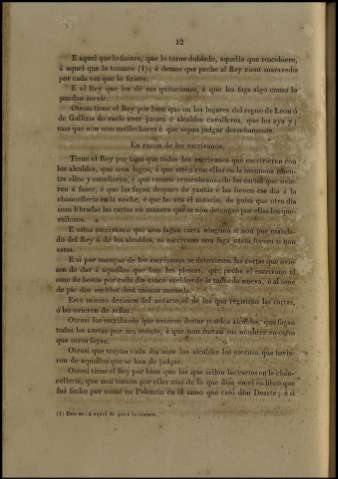 12
E aquel que lo ficiere, que lo torne doblado, aquello que rescibiere,
á aquel que lo tomare (1); é demas que peche al Rey cient maravedis
por cada vez que lo ficiere.
E el Rey que les dé sus quitaciones, é que les faga algo como lo
puedan servir.
Otrosi tiene el Rey por bien que en los lugares del regno de Leon ó
de Gallicia do suele aver jurado é alcalldes cavalleros, que los aya y;
mas que non sean malfechores é que sepan judgar derechamente.
En razon de los escrivanos.
Tiene el Rey por bien que todos los escrivanos que escrivieren con
los alcaldes, que sean legos; é que
ellos é estudieren, é que
ren á facer, é que las fagan despues de yantar é las lieven ese dia á la
chancelleria en la noche, é que las vea el notario, de guisa que otro dia
sean libradas las cartas en manera que se non detengan por ellas los que-
rellosos.
E estos escrivanos que non fagan carta ninguna si non por manda-
do del Rey ó de los alcaldes, ni escrivano non faga carta forera si non
estas.
E si por mengua de los escrivanos se detovieren las cartas que ovie-
sen de dar á aquellos que han los pleitos, que peche el escrivano al
ome de bestia por cada dia cinco sueldos de la moneda nueva, é al ome
de pie dos sueldos desta misma moneda.
Este mismo decimos del notario, é de los que registran las cartas,
ó las ovieren de sellar.
Otrosi los escrivanos que
todas las cartas por sus manos, é que non metan sus nombres en otras
que otros fagan.
Otrosi que trayan cada dia ante los alcaldes los escritos que tovie-
ren de aquellos que se han de judgar.
Otrosi tiene el Rey por bien que los que sellan las cartas en la chan-
celleria, que non tomen por ellas mas de lo que dirá en el su libro que
fué fecho por corte en Palencia en el anno que casó don Doarte; é si
(1) Esto es: á aquel de quien lo tomare.